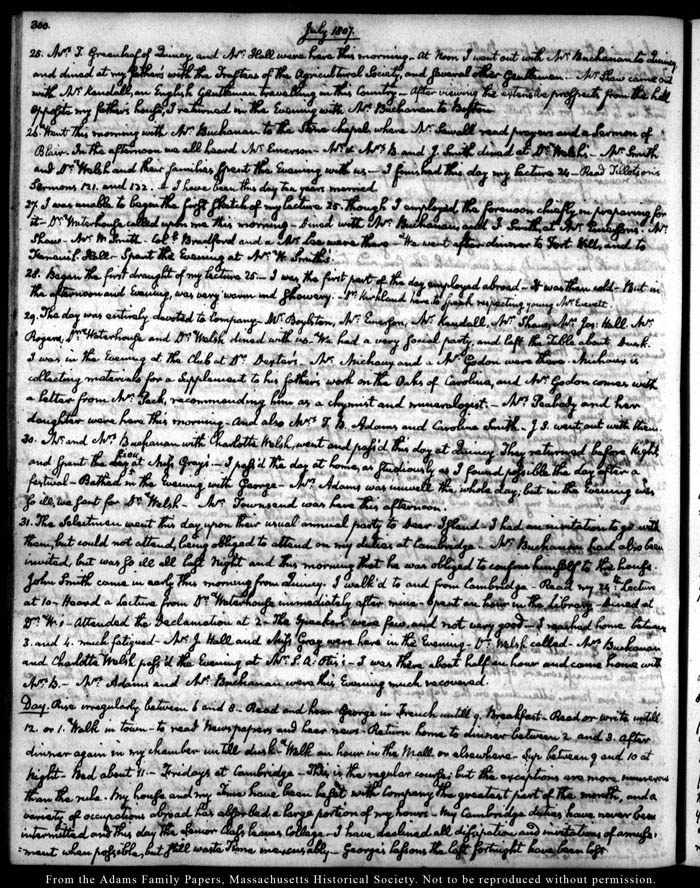 300.
July 1807.
25. Mrs. T. Greenleaf of Quincy, and Mr. Hall were here this morning. At Noon I went out with Mr. Buchanan to Quincy
and dined at my fathers with the Trustees of the Agricultural Society, and several other Gentlemen. Mr. Shaw came out
with Mr. Kendall, an English Gentleman travelling in this Country. After viewing the extensive prospects from the hill
opposite my father's house, I returned in the Evening with Mr. Buchanan to Boston.
26. Went this morning with Mr. Buchanan to the Stone chapel, where Mr. Sewall read prayers and a Sermon of
Blair. In the afternoon we all heard Mr. Emerson. Mr. & Mrs. B. and J. Smith dined at Dr. Welsh's. Mr. Smith
and Dr. Welsh and their families spent the Evening with us. I finished this day my lecture 24. Read Tillotson's
Sermons 121. and 122. I have been this day ten years married.
27. I was unable to began the first sketch of my lecture 25. though I employed the forenoon chiefly in preparing for
it. Dr. Waterhouse called upon me this morning. Dined with Mr. Buchanan, and J. Smith, at Mr. Emerson's. Mr.
Shaw. Mr. W. Smith. Coll. Bradford and a Mr. Lee were there. We went after dinner to Fort Hill, and to
Faneuil Hall. Spent the Evening at Mr. W. Smith's.
28. Began the first draught of my lecture 25. I was the first part of the day employed abroad. It was then cold. But in
the afternoon and Evening, was very warm and showery. Dr. Kirkland here to speak respecting young Mr. Everett.
29. The day was entirely devoted to Company. W. Boylston, Mr. Emerson, Mr. Kendall, Mr. Shaw, Mr. Jos: Hall, Mr.
Rogers, Dr. Waterhouse and Dr. Welsh, dined with us. We had a very social party, and left the Table about Dusk.
I was in the Evening at the Club at Dr. Dexter's. Mr. Michaux and a Mr. Godon were there. Michaux is
collecting materials for a Supplement to his father's work on the Oaks of Carolina, and Mr. Godon comes with
a letter from Mr. Peck, recommending him as a chymist and mineralogist. Mrs. Peabody and her
daughter were here this morning. And also Mrs. T. B. Adams and Caroline Smith. J. S. went out with them.
30. Mr. and Mrs. Buchanan with Charlotte Welsh, went and pass'd this day at Quincy. They returned before Night,
and spent the Eveg. day at Miss Gray's. I pass'd the day at home, as studiously as I found possible the day after a
festival. Bathed in the Evening with George. Mrs. Adams was unwell the whole day; but in the Evening was
so ill, we sent for Dr. Welsh. Mr. Townsend was here this afternoon.
31. The Selectmen went this day upon their usual annual party to Deer-Island. I had an invitation to go with
them, but could not attend, being obliged to attend on my duties at Cambridge. Mr. Buchanan had also been
invited, but was so ill all last Night and this morning that he was obliged to confine himself to the house.
John Smith came in early this morning from Quincy. I walk'd to and from Cambridge. Read my 24th Lecture
at 10. Heard a Lecture from Dr. Waterhouse immediately after mine. Spent an hour in the Library. Dined at
Dr. W.'s. Attended the Declamation at 2. The Speakers were few, and not very good. I reached home between
3. and 4. much fatigued. Mr. J. Hall and Miss Gray were here in the Evening. Dr. Welsh called. Mrs. Buchanan
and Charlotte Welsh pass'd the Evening at Mr. S. A. Otis's. I was there about half an hour and came home with
Mrs. B. Mrs. Adams and Mr. Buchanan were this Evening much recovered.
Day. Rise irregularly between 6 and 8. Read and hear George in French untill 9. Breakfast. Read or write untill
12. or 1. Walk in town. to read Newspapers and hear news. Return home to dinner between 2. and 3. After
dinner again in my chamber untill dusk. Walk an hour in the Mall or elsewhere. Sup between 9 and 10 at
Night. Bed about 11. Fridays at Cambridge. This is the regular course; but the exceptions are more numerous
than the rule. My house and my Time have been beset with Company the greatest part of the month, and a
variety of occupations abroad has absorbed a large portion of my hours. My Cambridge duties have never been
intermitted and this day the Senior Class leaves College. I have declined all dissipation and invitations of amuse-
ment when possible, but still waste Time inexcusably. George's lessons the last fortnight have been lost
From the Adams Family Papers, Massachusetts Historical Society. Not to be reproduced without permission.